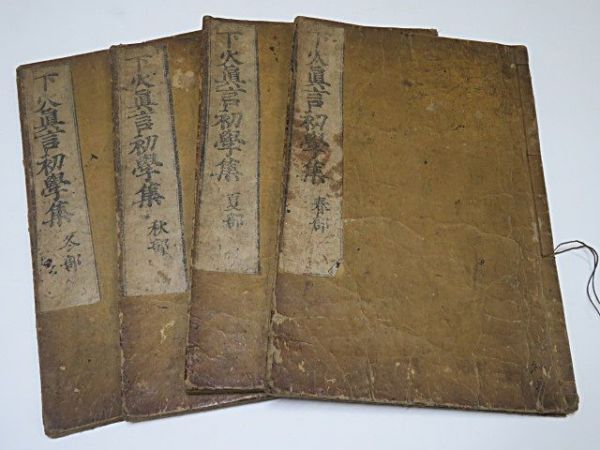 下火眞言初學集 春部
下火眞言初學集 夏部
下火眞言初學集 秋部
下火眞言初學集 冬部